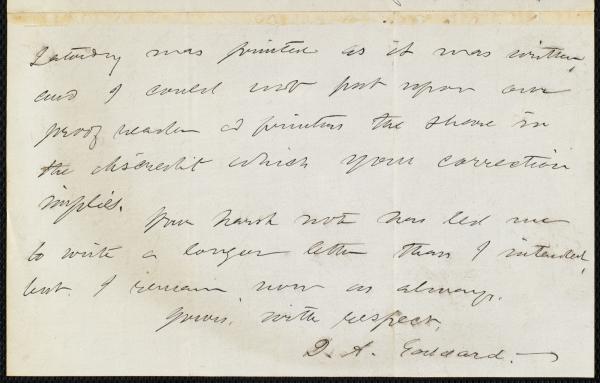 Saturday was printed as it was written,
and I could not put upon our
proof reader & printers the share in
the discredit which your correction
implies.
Your harsh note has led me
to write a longer letter than I intended,
but I remain now as always,
Yours, with respect,
D. A. Goddard.